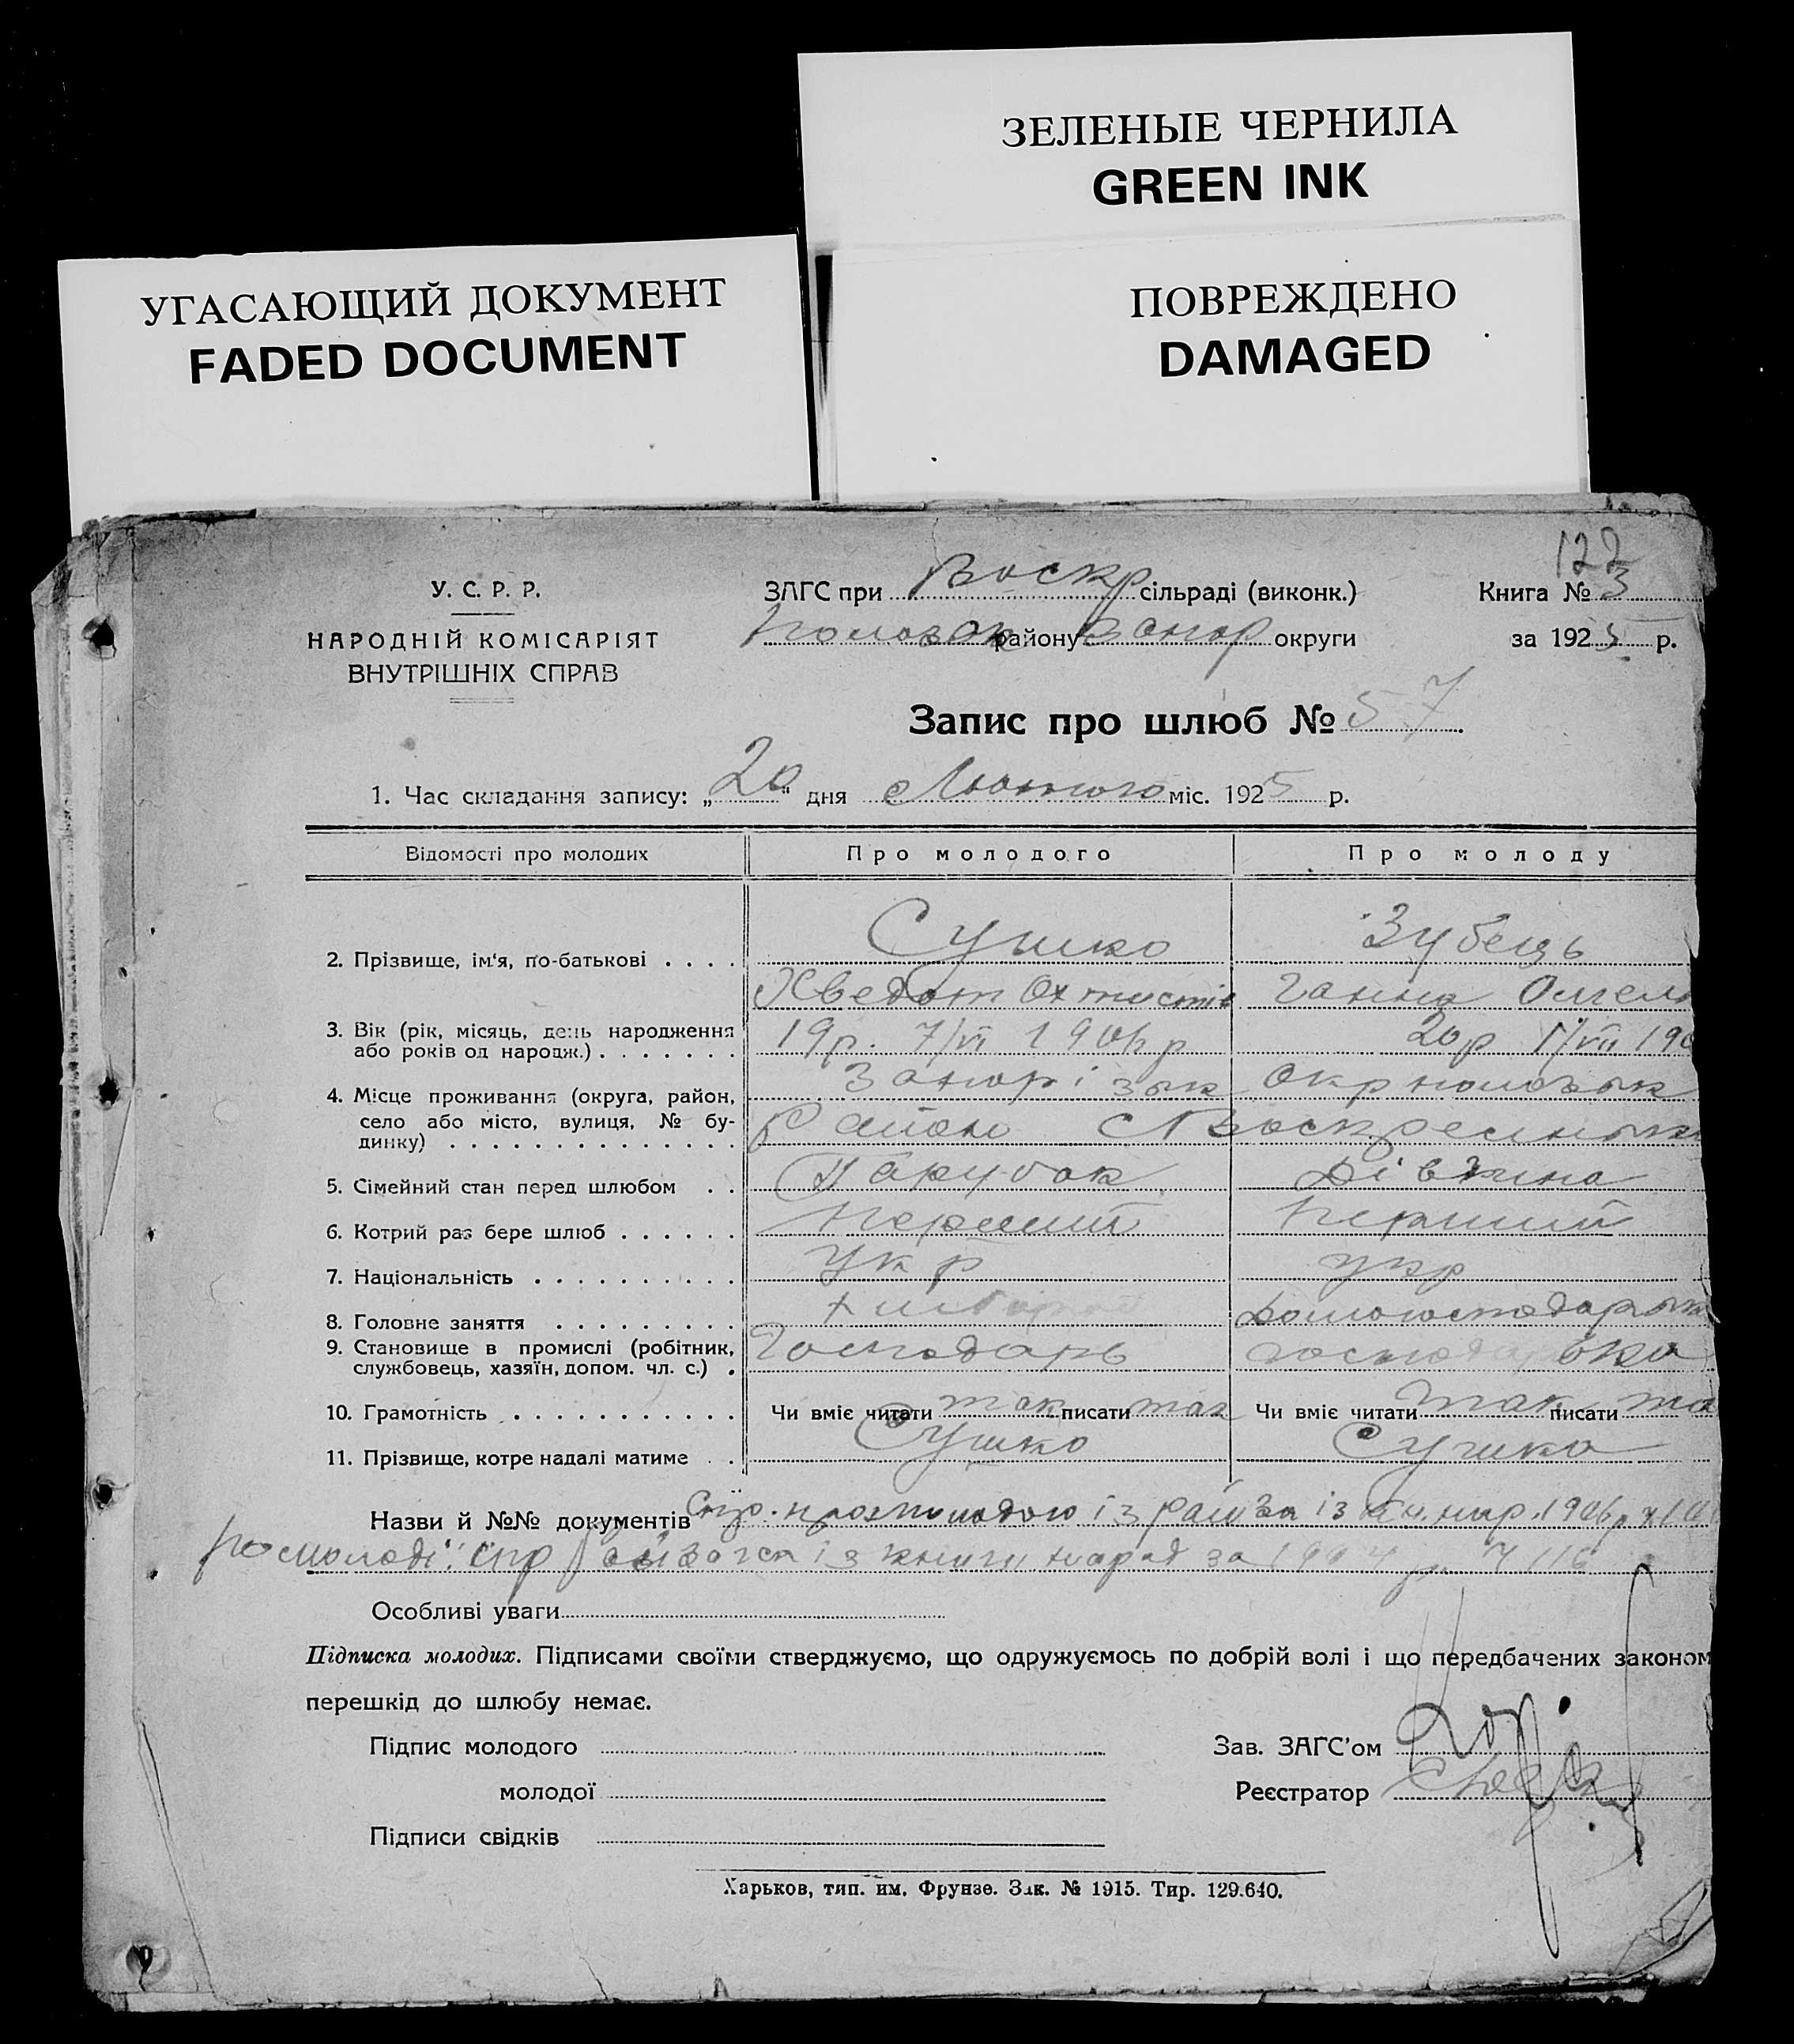 ЗЕЛЕНЫЕ ЧЕРНИЛА
GREEN INK
УГАСАЮЩИЙ ДОКУМЕНТ
FADED DOCUMENT
ПОВРЕЖДЕНО
DAMAGED
122
У. С. Р. Р.
НАРОДНІЙ КОМІСАРІЯТ
ВНУТРІШНІХ СПРАВ
ЗАГС при Воскр сільраді (виконк.)
району Запор округи
Книга № 3
за 1925 р.
Запис про шлюб № 57
1. Час складання запису: „20" дня Лютого міс. 1925 р.
Відомості про молодих
Про молодого
Про молоду
2. Прізвище, ім'я, по-батькові . . . .
Сушко
Зубець
Хведот
Ганна
3. Вік (рік, місяць, день народження
або років од народж.) . . . . . . .
19р. 7/VI 1906 р
20р 1/VII 190
4. Місце проживання (округа, район,
село або місто, вулиця, № бу-
динку) . . . . . . . . . . . . . .
Запоріз окр
Район
5. Сімейний стан перед шлюбом . .
Парубок
Дівчина
6. Котрий раз бере шлюб . . . . . .
Перший
Перший
7. Національність . . . . . . . . . .
Укр
укр
8. Головне заняття . . . . . . . . .
9. Становище в промислі (робітник,
службовець, хазяїн, допом. чл. с.) .
Господарь
10. Грамотність . . . . . . . . . . .
Чи вміє читати так писати так
Чи вміє читати так писати та
11. Прізвище, котре надалі матиме . .
Сушко
Сушко
Назви й №№ документів
по молоді: спр із книги народ за
Особливі уваги
Підписка молодих. Підписами своїми стверджуємо, що одружуємось по добрій волі і що передбачених законом
перешкід до шлюбу немає.
Підпис молодого
молодої
Підписи свідків
Зав. ЗАГС'ом
Реєстратор
Харьков, тип. им. Фрунзе. Зак. № 1915. Тир. 129.640.